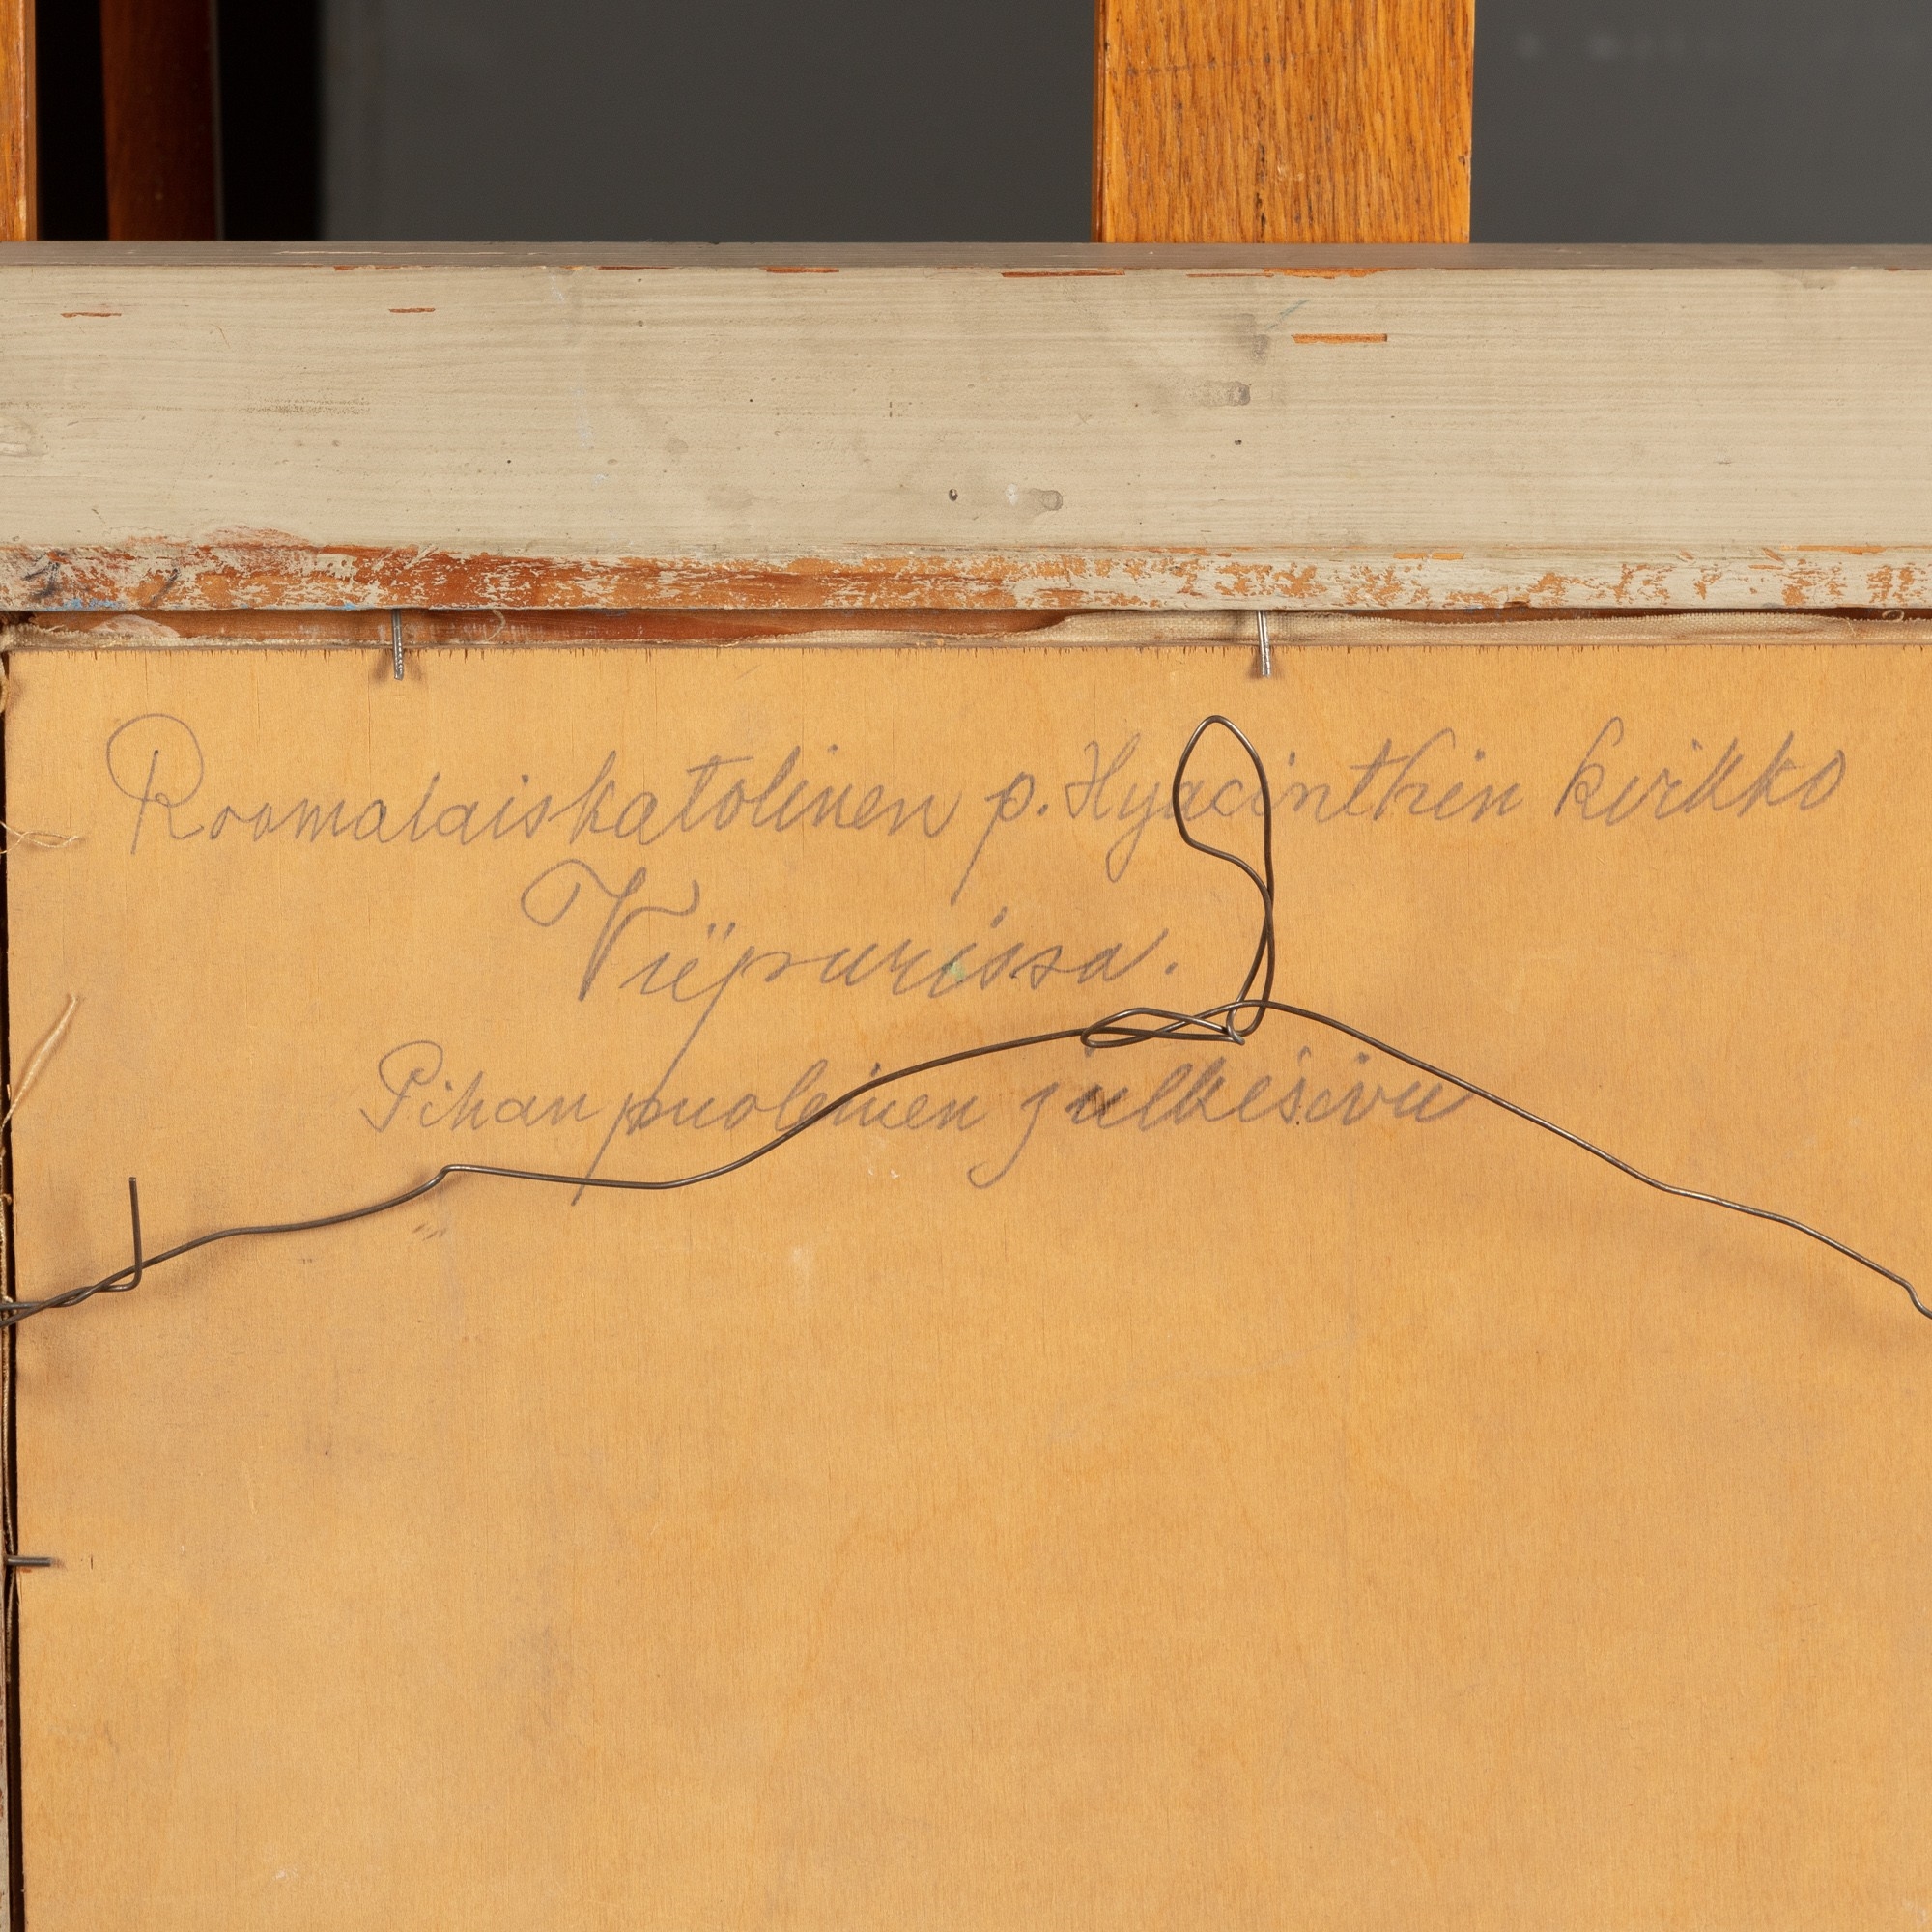 Roomalaiskatolinen p. Hyacinthin kirkko
Viipurissa.
Pihan puoleinen julkesivu